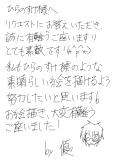 ひらのすけ様へ
リクエストにお答えいただき
誠に有難うございます!!
とても素敵です!(*^o^*)
私もひらのすけ様のような
素晴らしいお絵を描けるよう
努力したいと思います!
お絵描き、大変有難う
ございました!
by 優